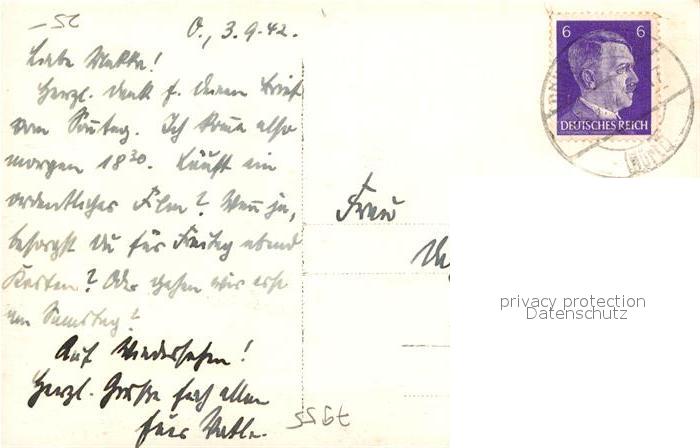 O., 3.9.42.
Liebe Mutter!
Herzl. Dank f. Deinen Brief
vom Sonntag. Ich komme also
morgen 18³⁰. Läuft ein
ordentlicher Film? Wenn ja,
besorgst Du für Freitag abend
Karten? Oder gehen wir erst
am Samstag?
Auf Wiedersehen!
Herzl. Grüße Euch allen
Euer
6 6
DEUTSCHES REICH
Frau
privacy protection
Datenschutz